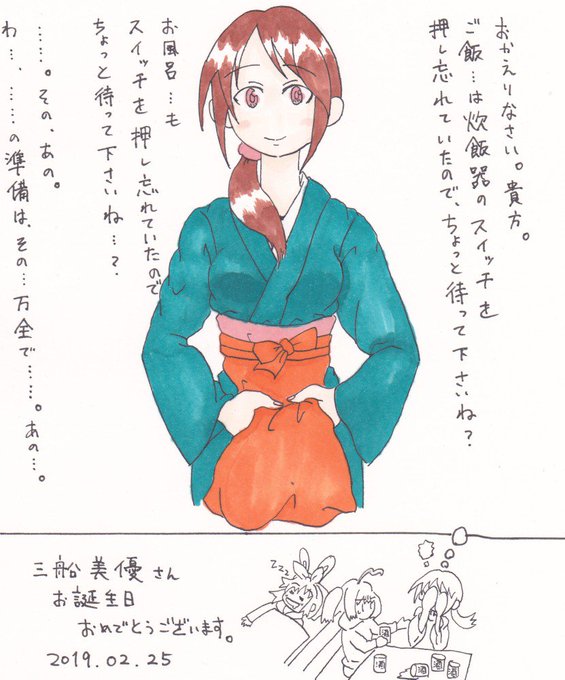 おかえりなさい。貴方。
ご飯…は炊飯器のスイッチを
押し忘れていたので、ちょっと待って下さいね？
お風呂…も
スイッチを押し忘れていたので
ちょっと待って下さいね…？
……。その、あの。
わ…、……の準備は、その…万全で……。あの…。
三船美優さん
お誕生日
おめでとうございます。
2019.02.25
zzz
酒
酒
酒
酒